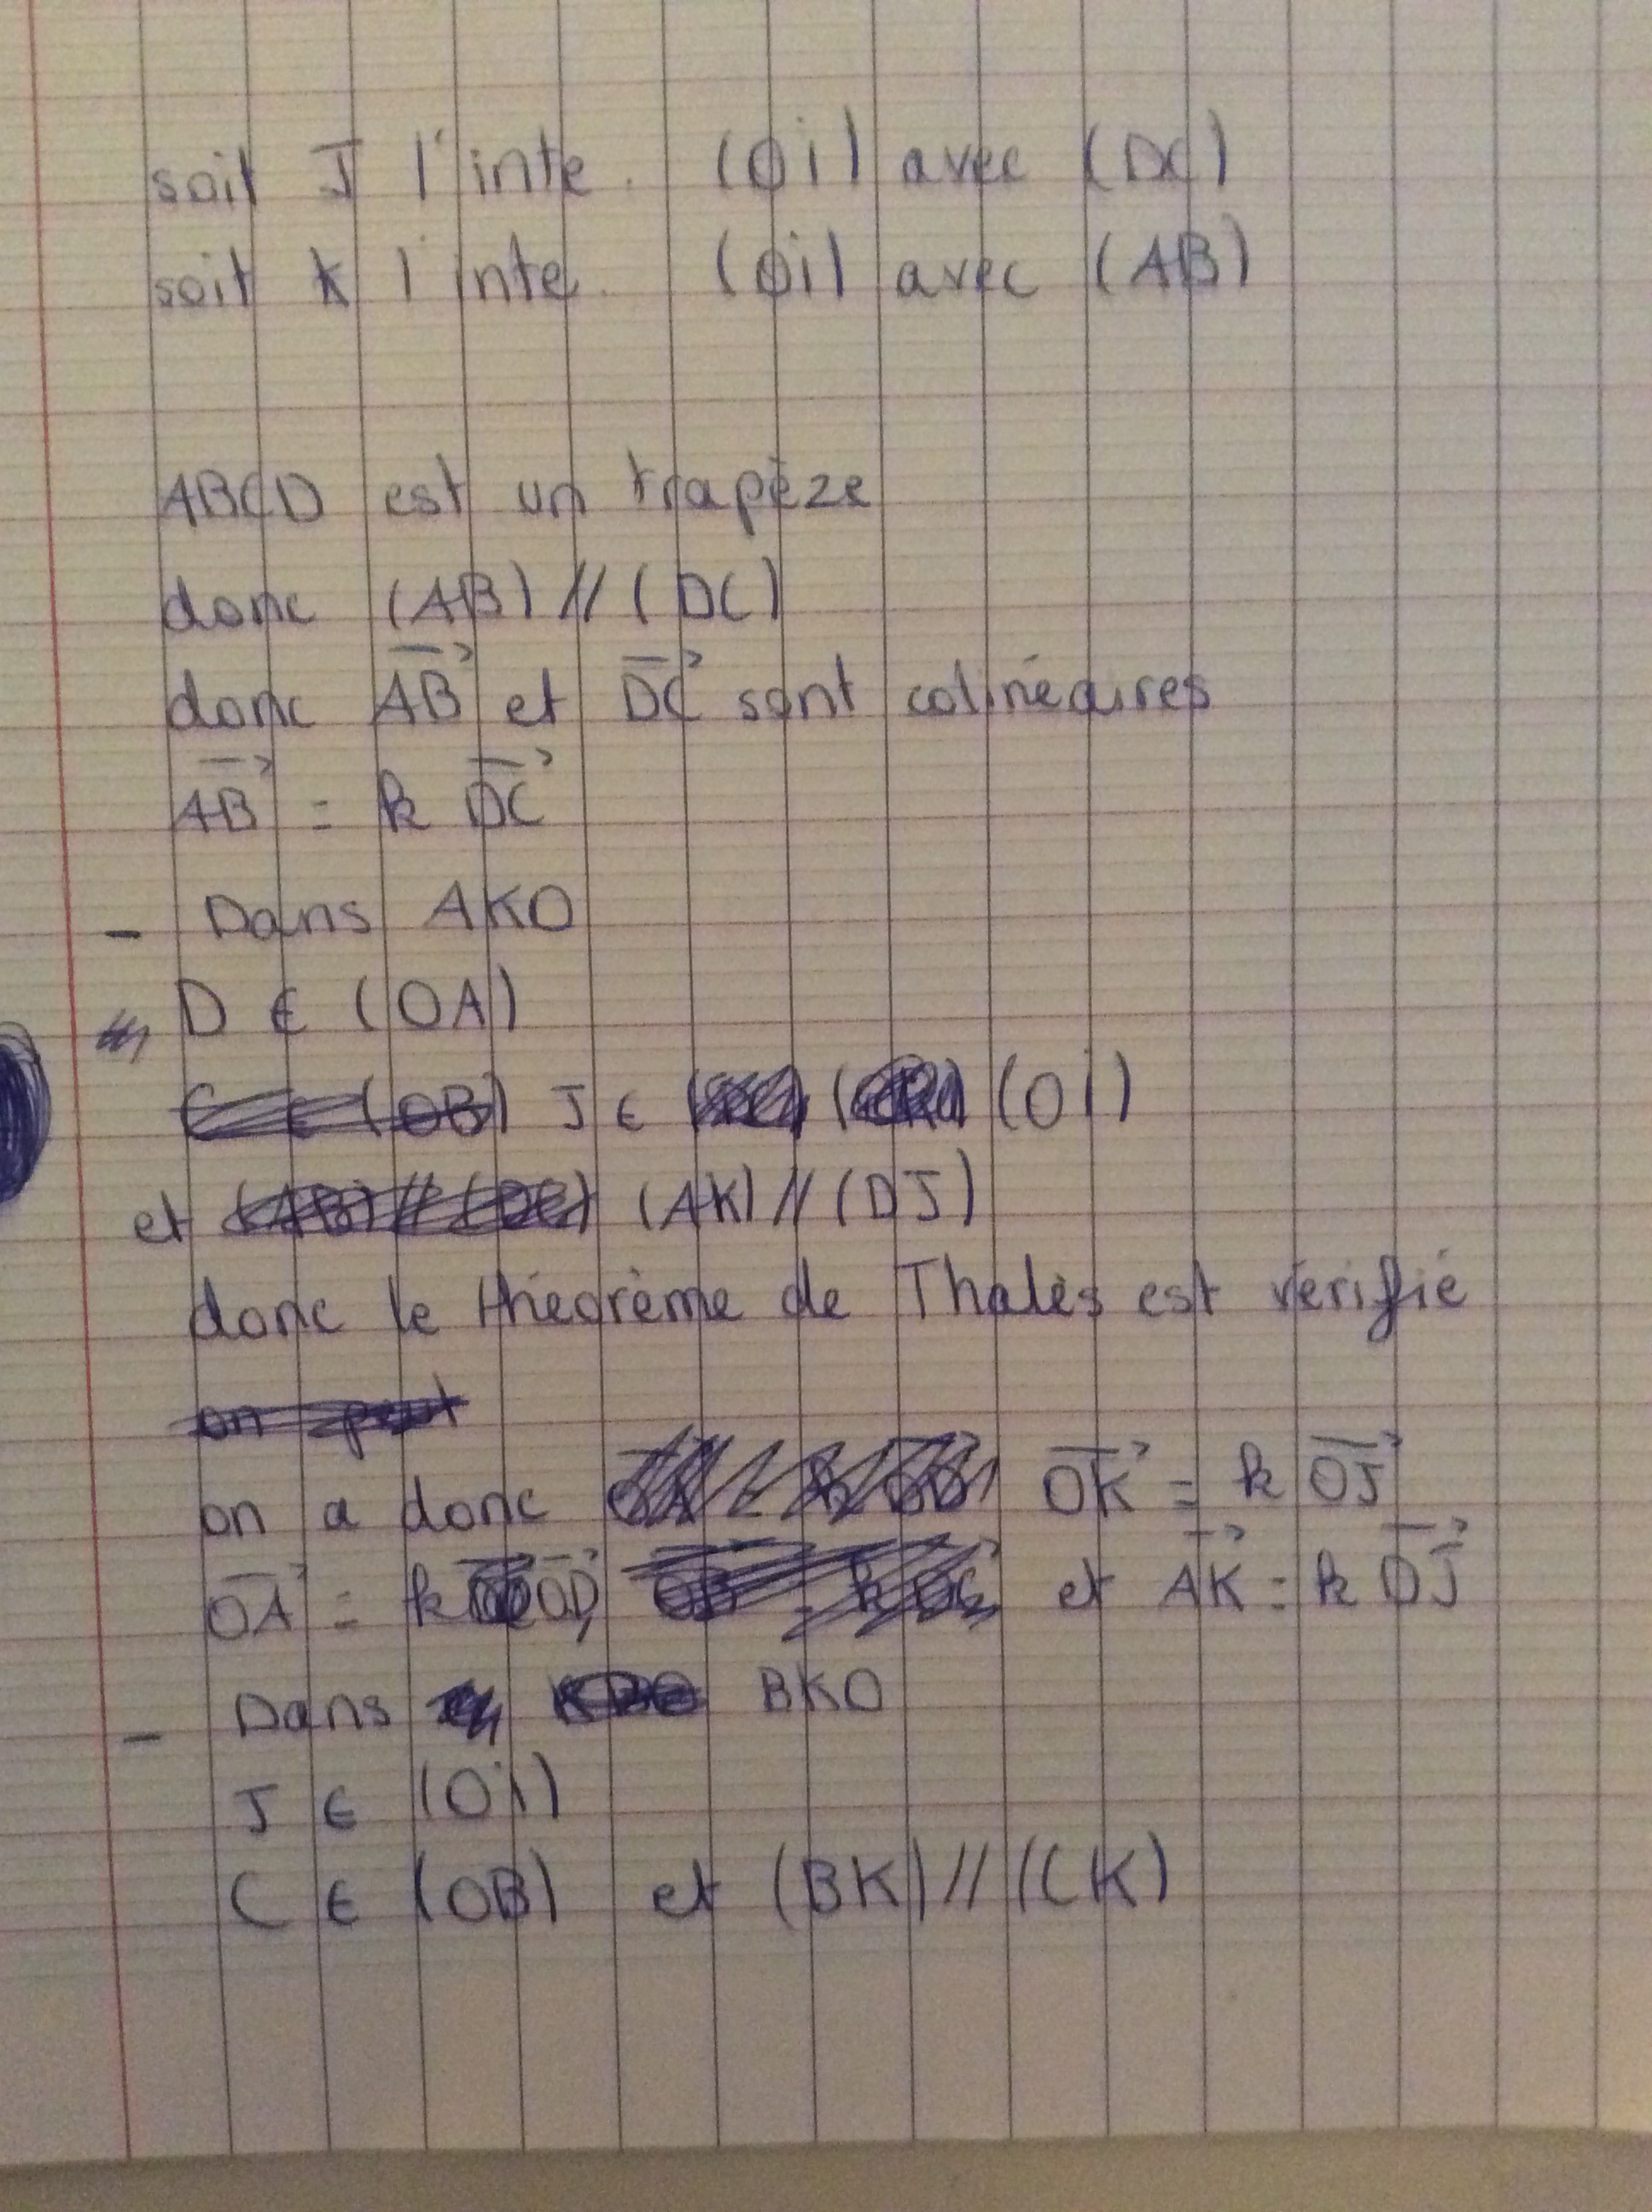 soit J l'inte. (Oi) avec (DC)
soit K l'inte. (Oi) avec (AB)
ABCD est un trapèze
donc (AB) // (DC)
donc AB et DC sont colinéaires
AB = k DC
- Dans AKO
D ∈ (OA)
C ∈ (OB) J ∈ (Oi)
et (AB) // (DC) (AK) // (DJ)
donc le théorème de Thalès est vérifié
on peut
on a donc OK = k OJ
OA = k OD, et AK = k DJ
- Dans BKO
J ∈ (Oi)
C ∈ (OB) et (BK) // (CK)